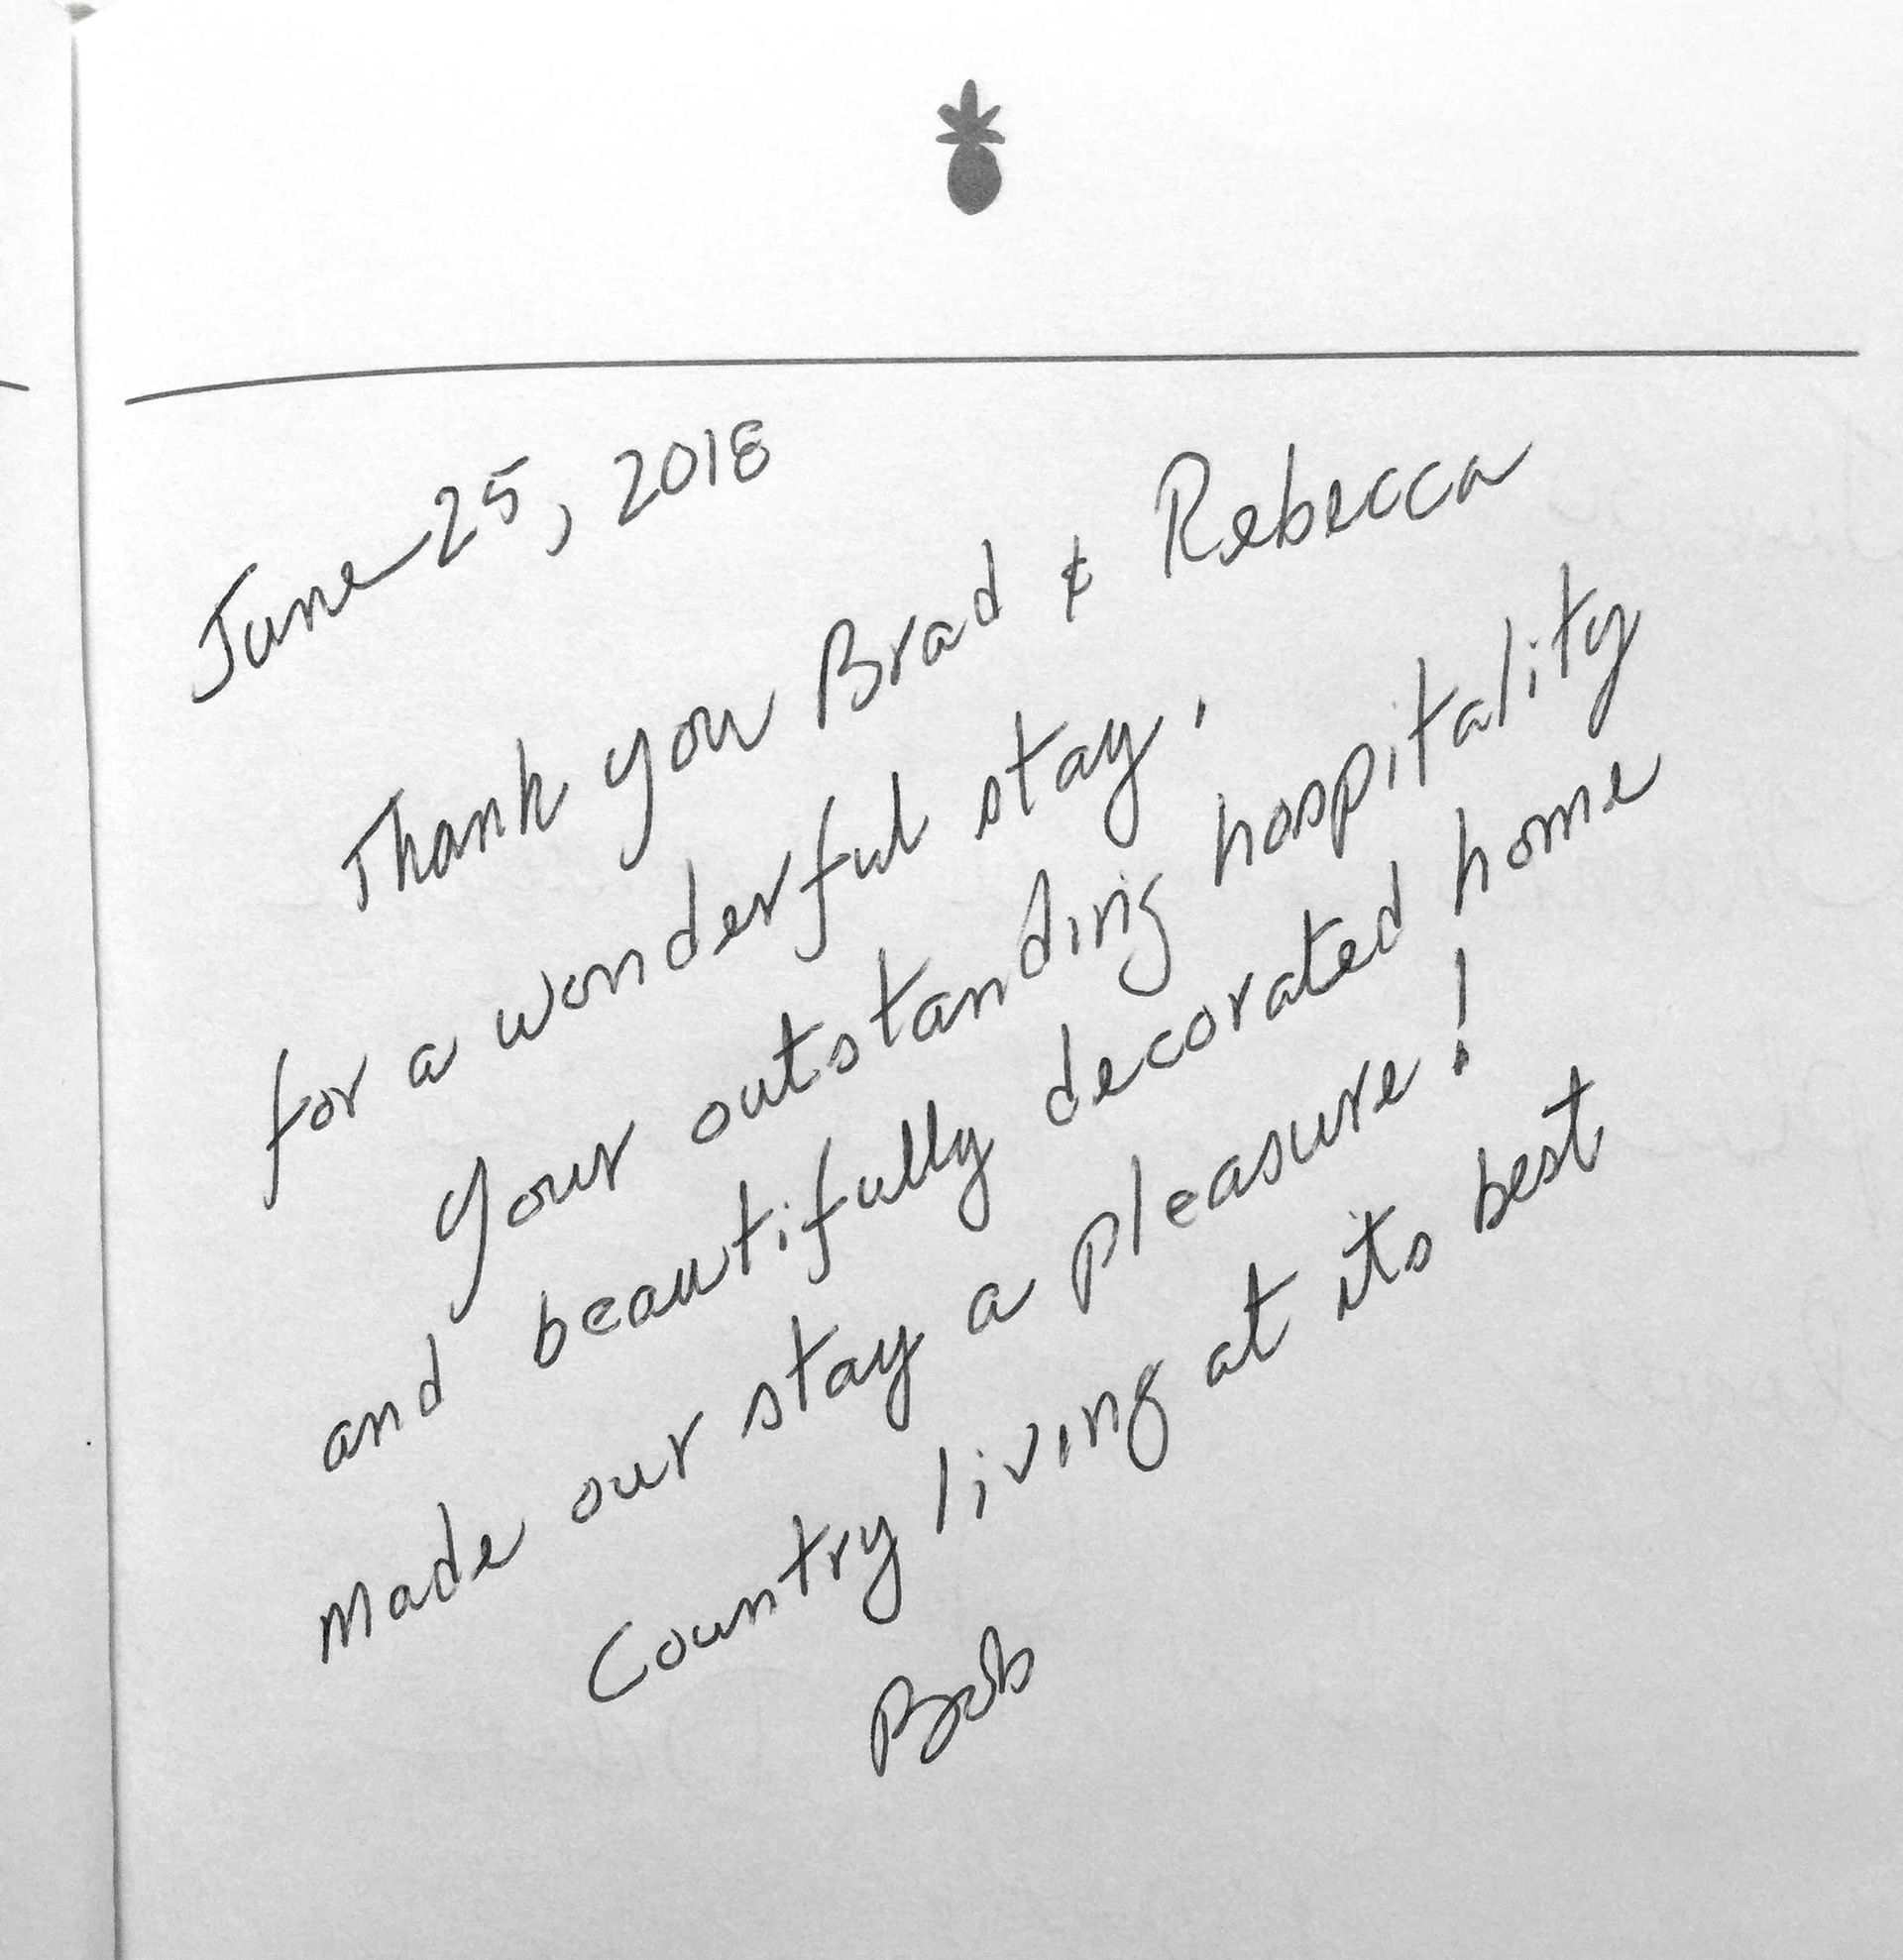 June 25, 2018
Thank you Brad & Rebecca
for a wonderful stay.
Your outstanding hospitality
and beautifully decorated home
made our stay a pleasure!
Country living at its best
Bob